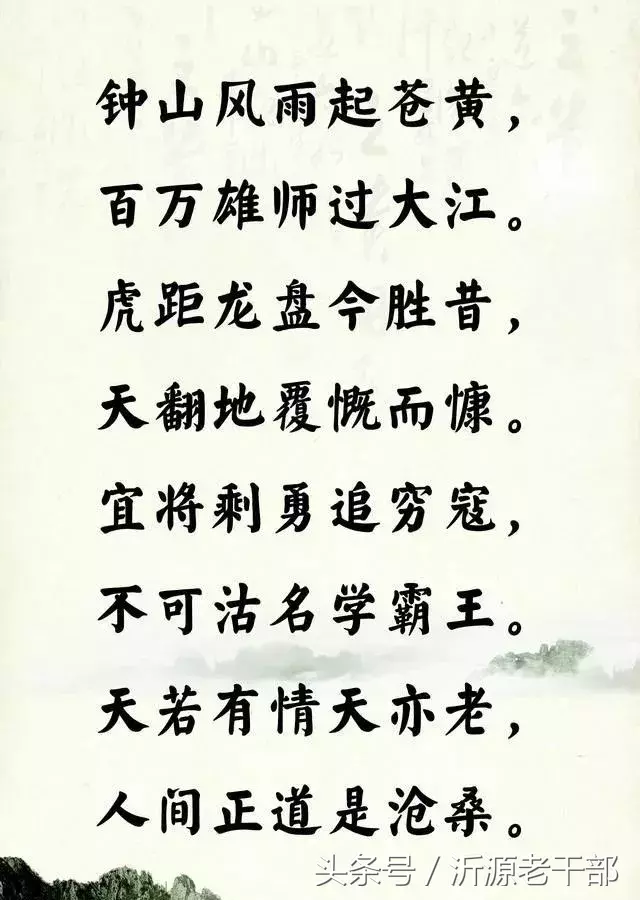 钟山风雨起苍黄，
百万雄师过大江。
虎距龙盘今胜昔，
天翻地覆慨而慷。
宜将剩勇追穷寇，
不可沽名学霸王。
天若有情天亦老，
人间正道是沧桑。
头条号／沂源老干部